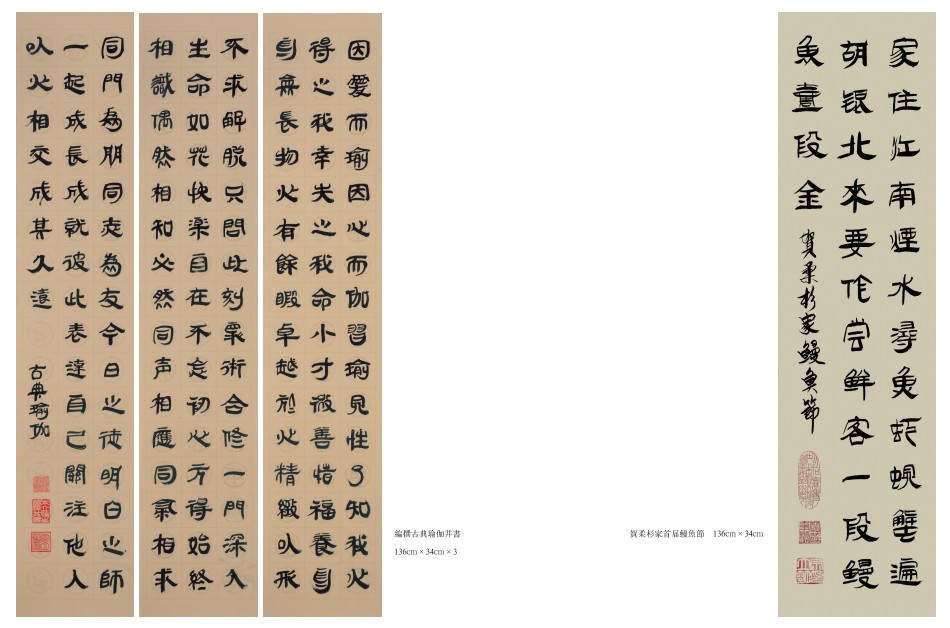 因愛而瑜因心而伽習瑜見性了知我心
得之我幸失之我命小才微善惜福養身
身無長物心有餘暇卓越於心精緻以形
不求解脱只問此刻眾術合修一門深入
生命如花快樂自在不忘初心方得始終
相識偶然相知必然同声相應同氣相求
同門為朋同志為友今日之徒明白之師
一起成長成就彼此表達自己關注他人
以心相交成其久遠
古典瑜伽
編撰古典瑜伽并書
136cm × 34cm × 3
賀柔杉家首届鰻魚節 136cm × 34cm
家住江南煙水潯魚虾蜆蟹遍
胡銀北來要作嘗鮮客一段鰻
魚壹段金
賀柔杉家鰻魚節